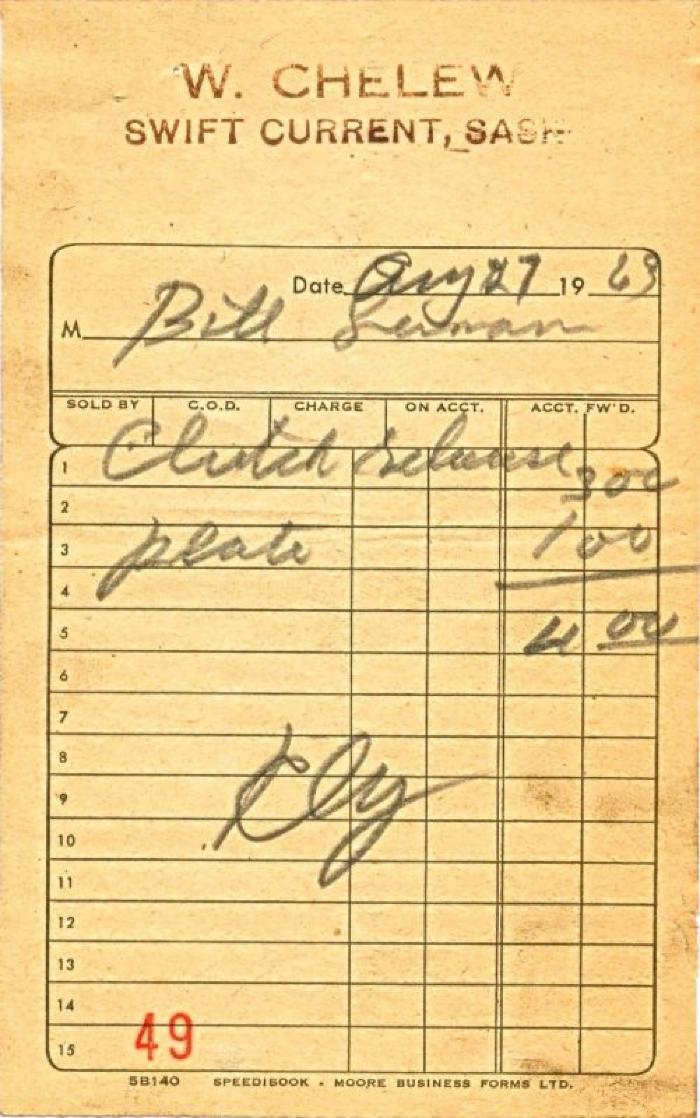 W. CHELEW
SWIFT CURRENT, SASK.
Date Aug 27 19 63
M Bill
SOLD BY C.O.D. CHARGE ON ACCT. ACCT. FW'D.
1 Clutch release 3 00
2
3 plate 1 00
4
5 4 00
6
7
8
9
10
11
12
13
14
15 49
5B140 SPEEDIBOOK - MOORE BUSINESS FORMS LTD.